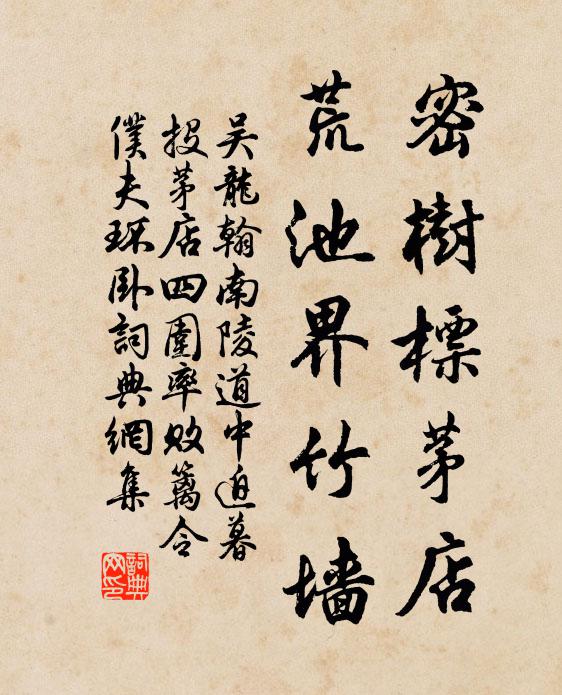 密樹標茅店
荒池界竹墙
吴龍翰南陵道中迫暮
投茅店四圍率敗籬令
僕夫环卧詞典網集
詞典
网印